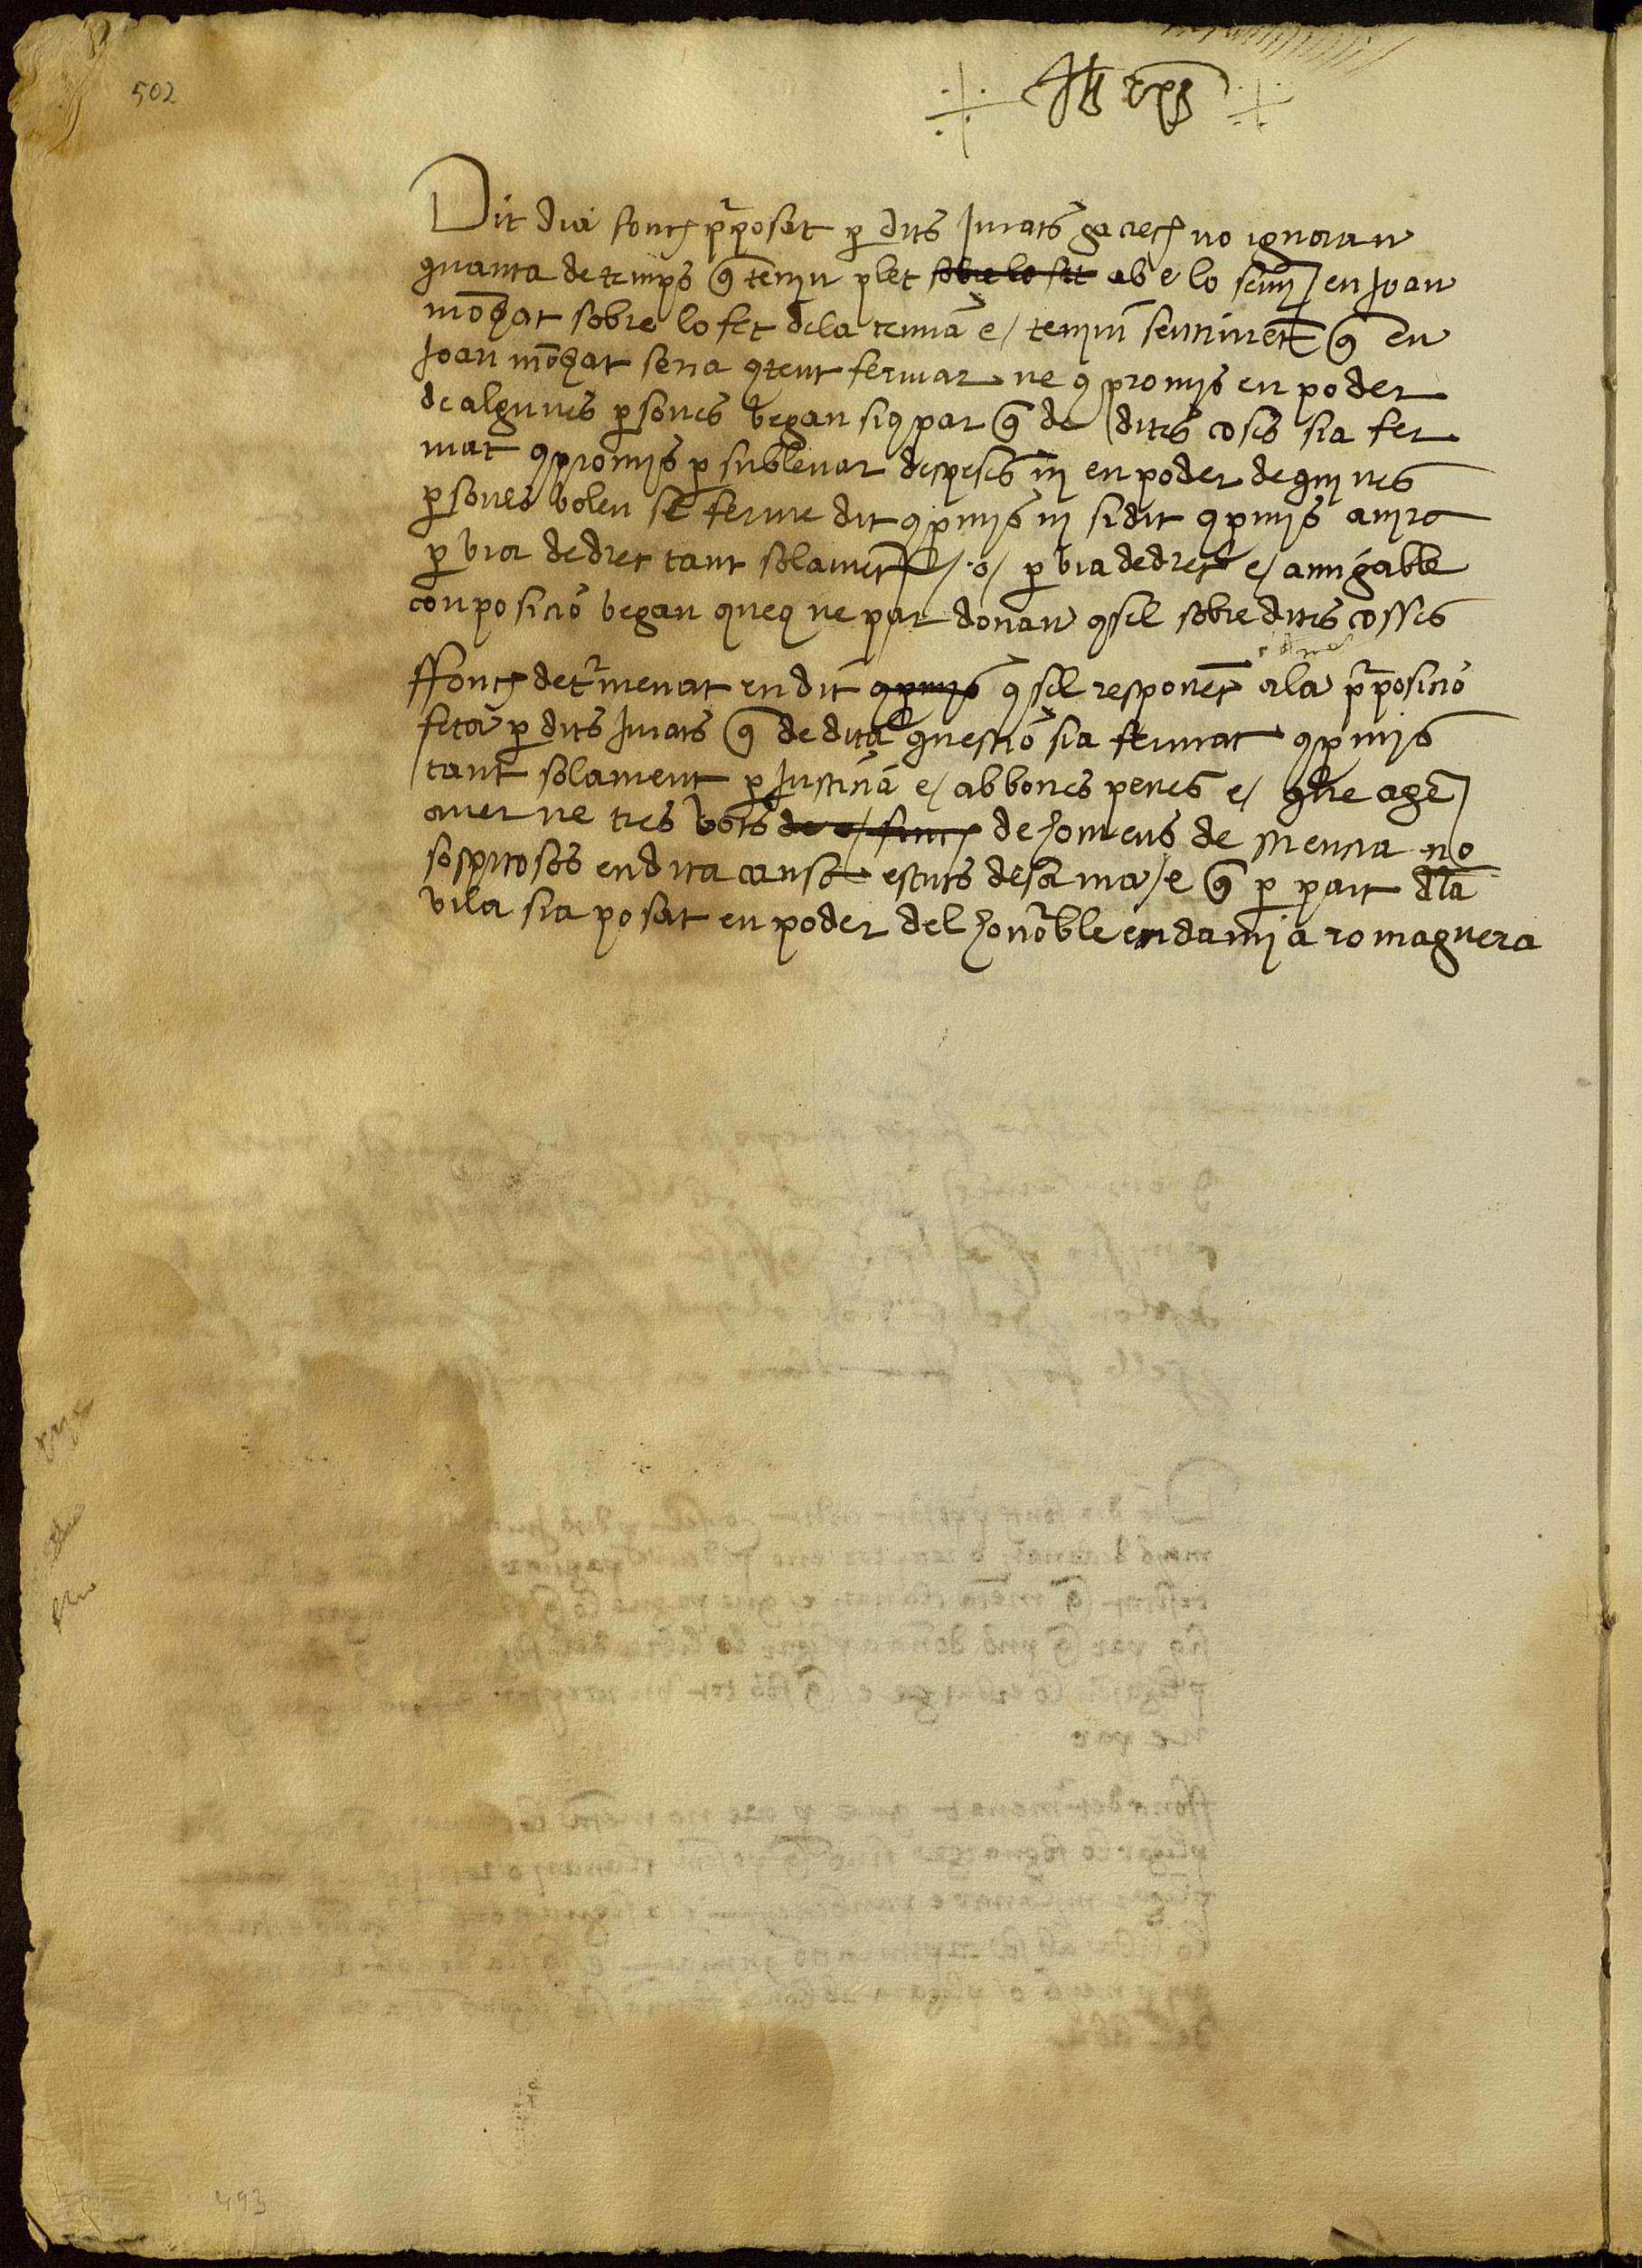 502
Jhs xps
Dit dia fonch pposat p dits Jurats ja crech no ignoran
quanta de temps q tenim plet sobre lo fet ab e lo seny en Joan
mōṣat sobre lo fet dela renuā e / tenim sentimēt q en
Joan mōṣat seria 9tent fermar ne 9promis en poder
de algunes psones vegan si9 par q de dites coses sia fer
mat 9promis p sublevar despeses ni en poder de quines
psones volen se ferme dit 9pmis ni si dit 9pmis anira
p via de dret tant solamēt / o / p via de dret e / amigable
conposicio vegan que9 ne par donan 9sel sobre dites cosses
Ffonch detmenat en dit 9pmis 9sel responēt ala pposicio
feta p dits Jurats q de dita questio sia fermat 9pmis
tant solament p Justicia e / ab bones penes e / que age
aver ne tres vots de e / fonch de homens de siencia no
sospitosos en dita causa estants desa mar / e q p part dla
vila sia posat en poder del honoble en damia romaguera
493